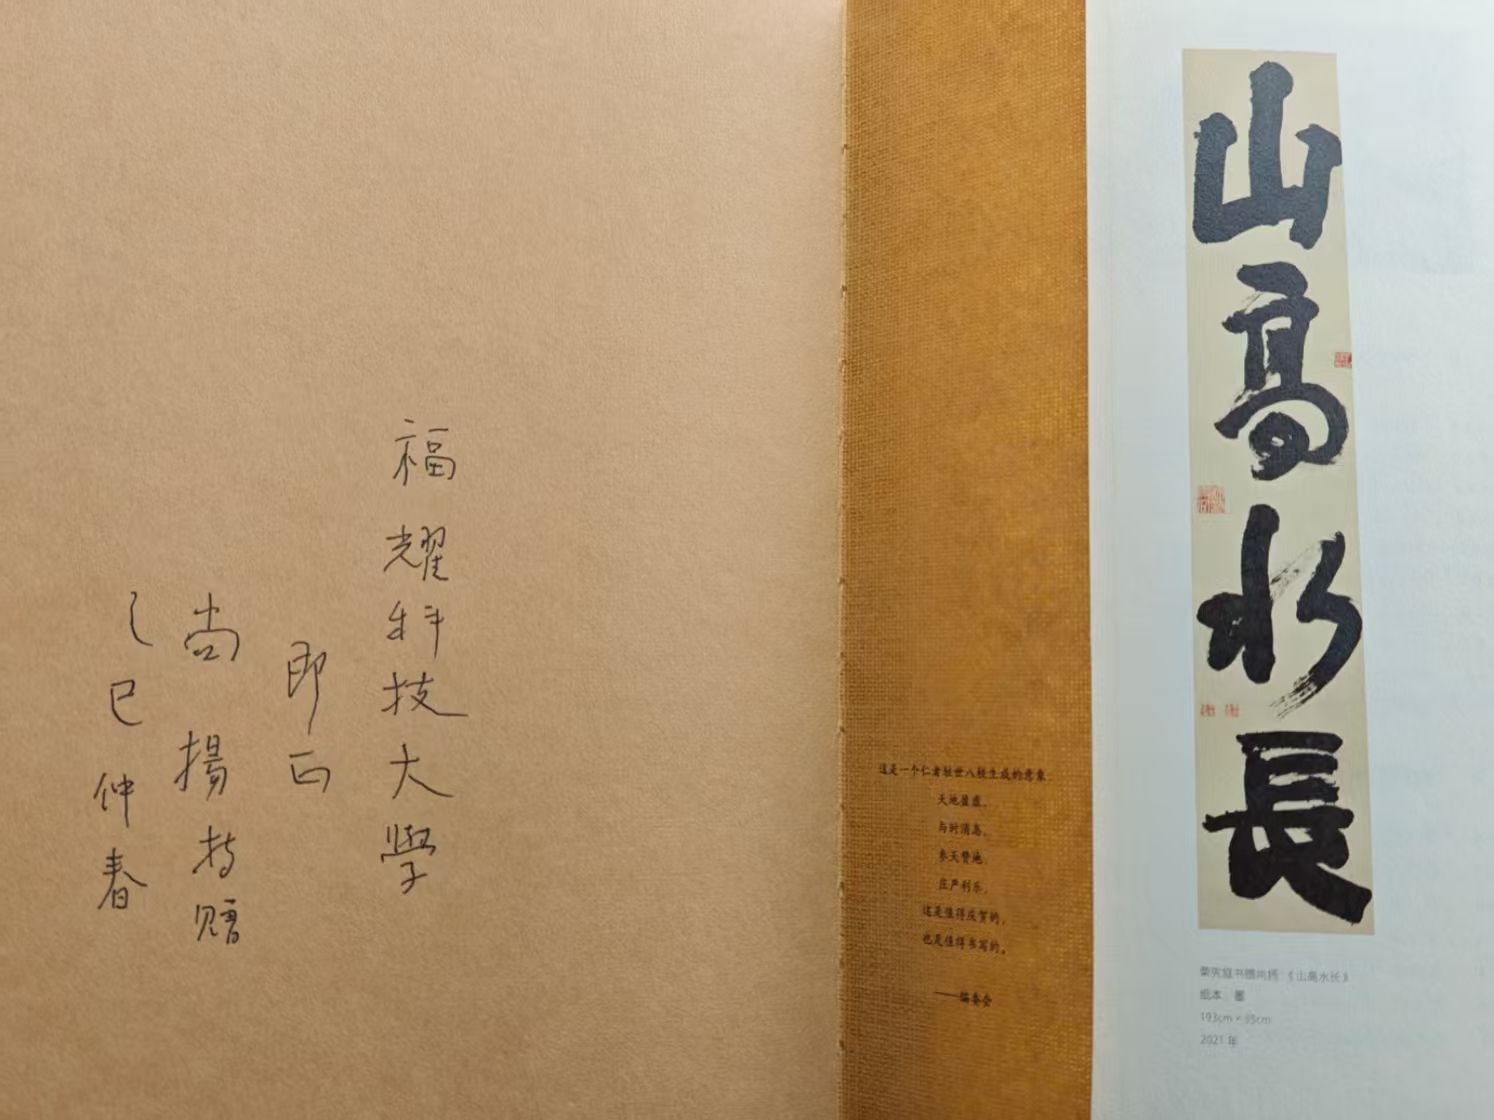 福耀科技大學
即正
尚揚持贈
乙巳仲春
这是一个仁者驻世八秩生成的意象
天地盈虚，
与时消息，
参天赞地，
庄严利乐。
这是值得庆贺的，
也是值得书写的。
——编委会
山高水長
栗宪庭书赠尚扬：《山高水长》
纸本 墨
2021 年